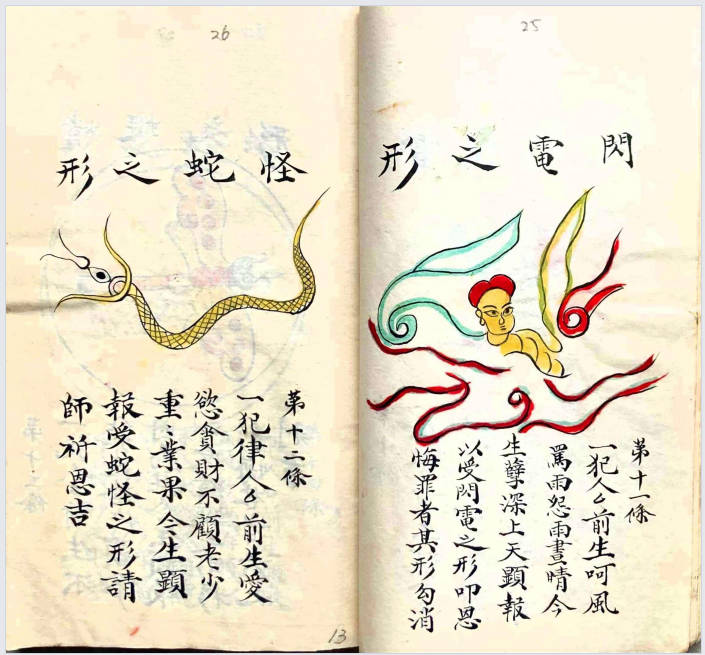 25
閃電之形
第十一條
一犯人厶前生呵風
罵雨怨雨晝晴今
生孽深上天顯報
以受閃電之形叩恩
悔罪者其形勾消
26
怪蛇之形
第十二條
一犯律人厶前生愛
慾貪財不顧老少
重〻業果今生顯
報受蛇怪之形請
師祈恩吉
13